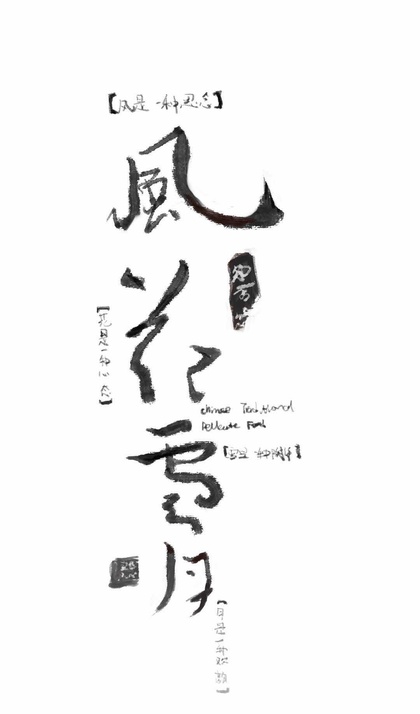 【风是一种思念】
風
花
【花是一种心态】
Chinese Traditional
Delicate Font
雪
【雪是一种陪伴】
月
【月是一种